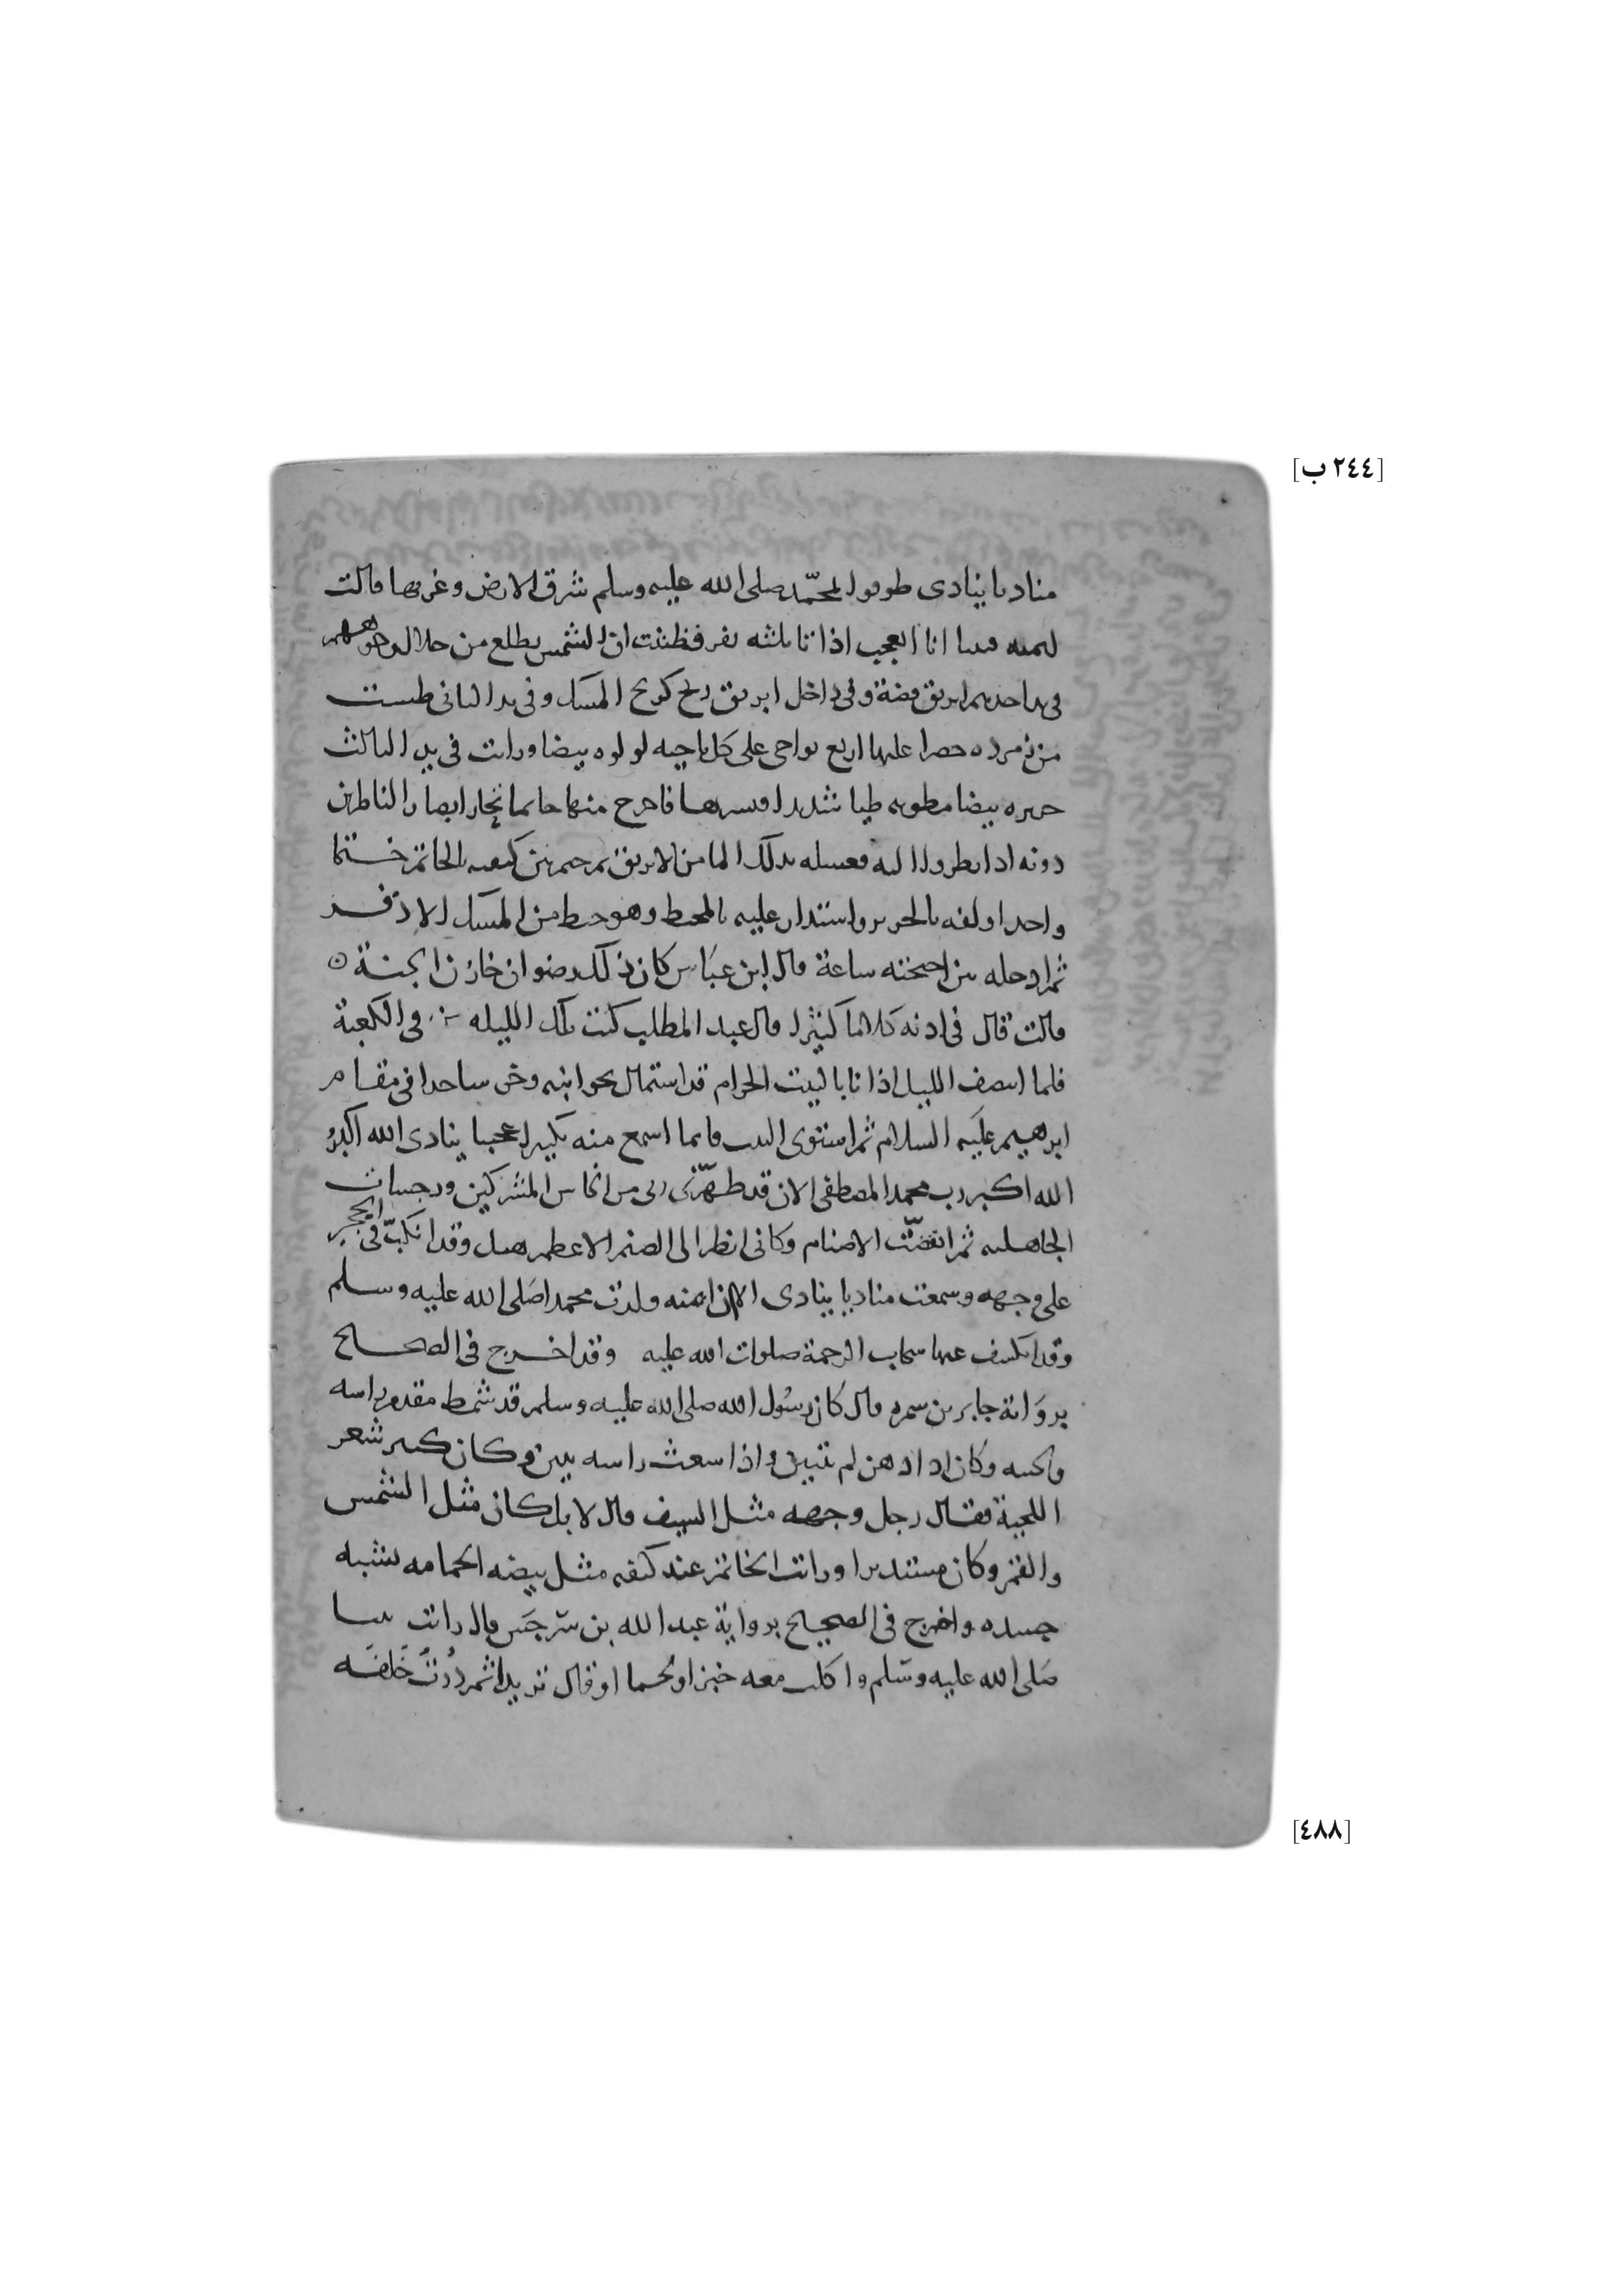 [٢٤٤ ب]
مناديا ينادى طوفوا بمحمّد صلى الله عليه وسلم شرق الارض وغربها قالت
امنه فبينا انا اعجب اذا انا بثلثه نفر فظننت ان الشمس يطلع من خلال وجوههم
فى يد احدهم ابريق فضة وفى داخل ابريق ريح كريح المسك وفى يد الثانى طست
من زمرده خضرا عليها اربع نواحى على كل ناحيه لولوه بيضا ورايت فى يد الثالث
حريره بيضا مطويه طيا شديدا فنشرها فاخرج منها خاتما تحار ابصار الناظرين
دونه اذا نظروا اليه فغسله بذلك الما من الابريق ثم ختم بين كتفيه بالخاتم ختما
واحدا ولفه بالحرير واستدار عليه بالخيط وهو خيط من المسك الاذفر
ثم ادخله بين اجنحته ساعة قال ابن عباس كان ذلك رضوان خازن الجنة ۞
قالت قال فى اذنه كلاما كثيرا قال عبد المطلب كنت تلك الليله فى الكعبة
فلما انتصف الليل اذا انا بالبيت الحرام قد استمال بجوانبه وخر ساجدا فى مقام
ابرهيم عليه السلام ثم استوى البيت قايما اسمع منه تكبيرا عجبا ينادى الله اكبر
الله اكبر رب محمد المصطفى الان قد طهّرنى ربى من انجاس المشركين ورجسات
الجاهليه ثم انقضّت الاصنام وكانى انظر الى الصنم الاعظم هبل وقد انكبّ فى الحجر
على وجهه وسمعت مناديا ينادى الا ان امنه ولدت محمدا صلى الله عليه وسلم
وقد انكسف عنها سحاب الرحمة صلوات الله عليه وقد اخرج فى الصحاح
برواية جابر بن سمره قال كان رسول الله صلى الله عليه وسلم قد شمط مقدم راسه
ولحيته وكان اذا ادهن لم تتبين واذا شعث راسه تبين وكان كثير شعر
اللحية فقال رجل وجهه مثل السيف قال لا بل كان مثل الشمس
والقمر وكان مستديرا ورايت الخاتم عند كتفه مثل بيضه الحمامه يشبه
جسده واخرج فى الصحيح برواية عبد الله بن سَرجَس قال رايت
صلى الله عليه وسلم واكلت معه خبزا ولحما او قال ثريدا ثم دُرتُ خَلفَه
[٤٨٨]